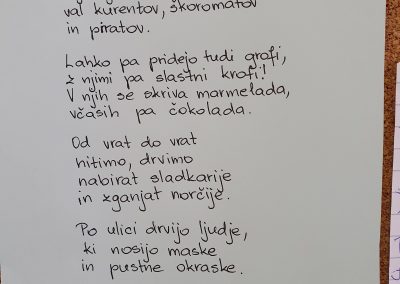 val kurentov, škoromatov
in piratov.
Lahko pa pridejo tudi grofi,
z njimi pa slastni krofi!
V njih se skriva marmelada,
včasih pa čokolada.
Od vrat do vrat
hitimo, drvimo
nabirat sladkarije
in zganjat norčije.
Po ulici drvijo ljudje,
ki nosijo maske
in pustne okraske.